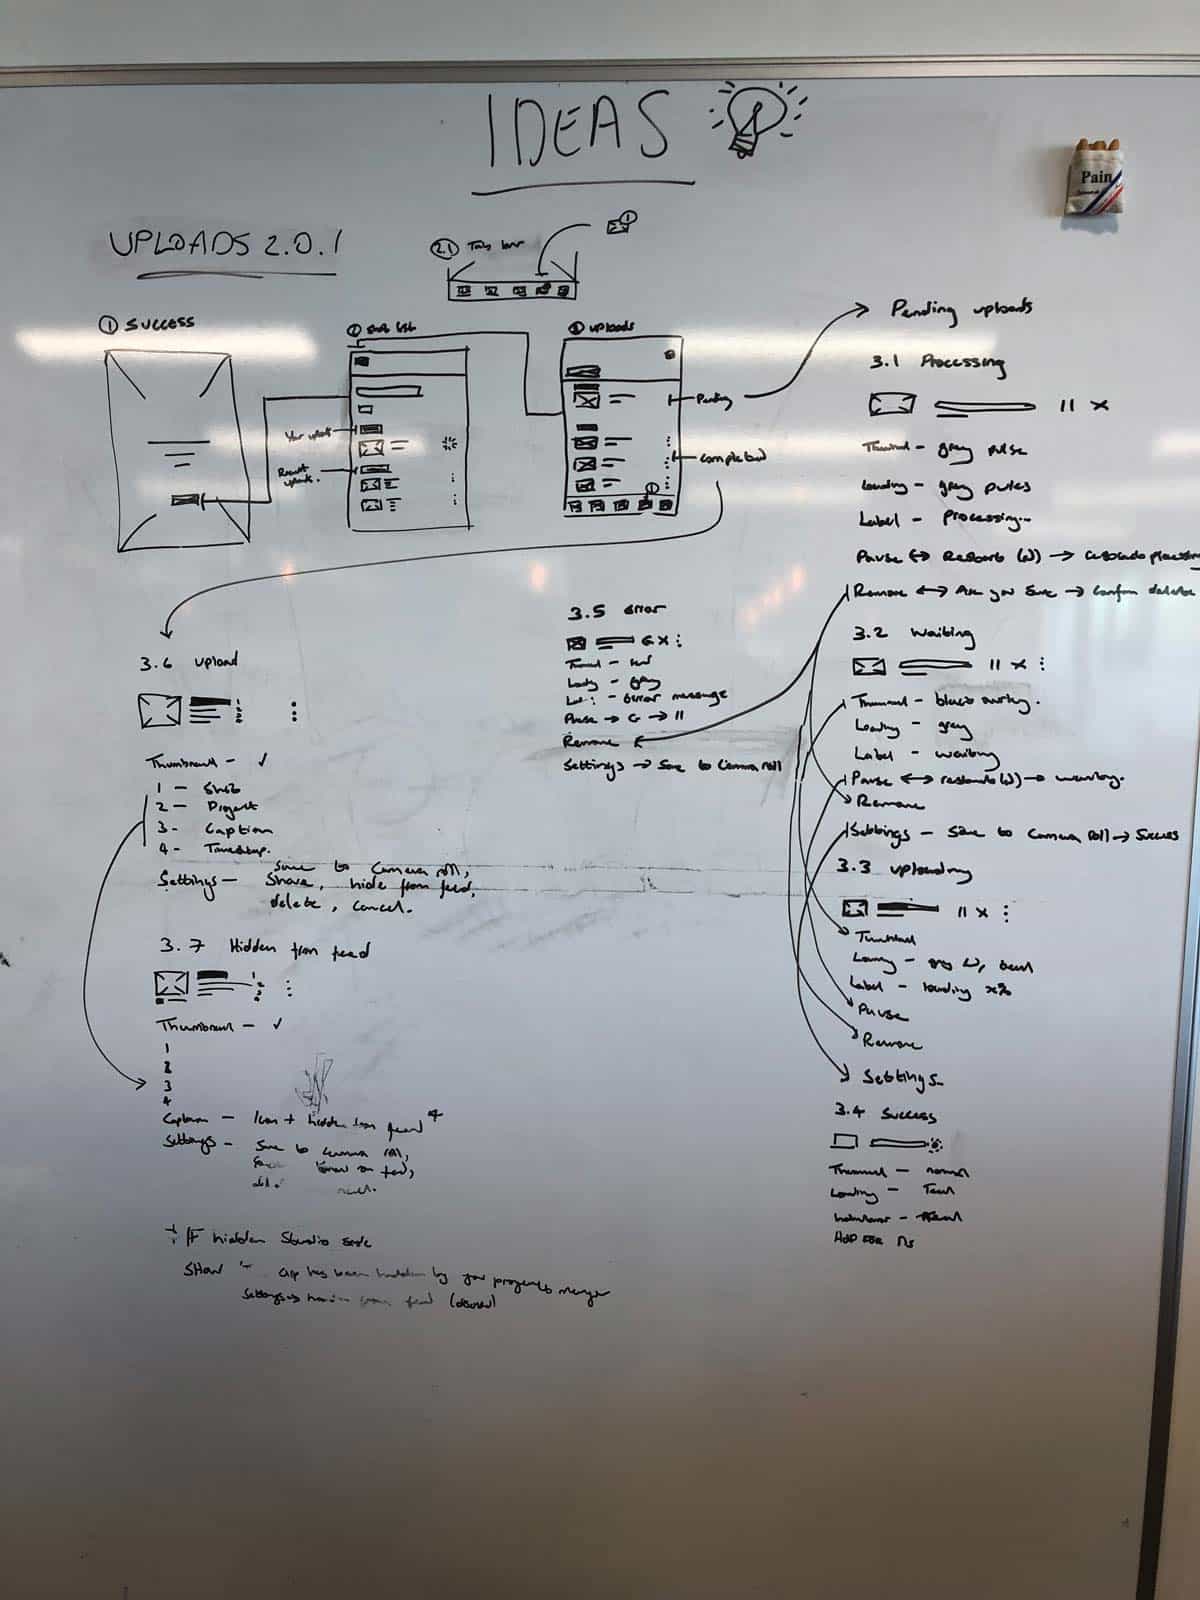 IDEAS
Pain
UPLOADS 2.0.1
2.1 Tab bar
1
① SUCCESS
② list
③ uploads
Pending
Your uploads
Recent uploads.
Completed
1
Pending uploads
3.1 Processing
Thumbnail - grey pulse
Loading - grey pulse
Label - Processing...
Pause ↔ Restart (W) → processing
Remove ↔ Are you Sure → Confirm delete
3.2 Waiting
Thumbnail -
Loading - grey
Label - waiting
Pause ↔ restart (W) → waiting.
Remove
Settings - Save to Camera roll → Success
3.3 uploading
Thumbnail
Loading - grey
Label - loading x%
Pause
Remove
Settings
3.4 Success
Thumbnail - normal
Loading - Teal
3.5 error
Loading - grey
error message
Pause → G → 11
Remove
Settings → Save to Camera roll
3.6 upload
Thumbnail - ✓
1 -
2 - Project
3 - Caption
4 - Timestamp.
Settings - Save to Camera roll,
Share, hide from feed,
delete, cancel.
3.7 Hidden from feed
Thumbnail - ✓
1
2
3
4
Caption - Icon + hidden from feed
Settings - Save to camera roll,
Show on feed,
If hidden Studio side
Show has been hidden by your projects manager
Settings → feed